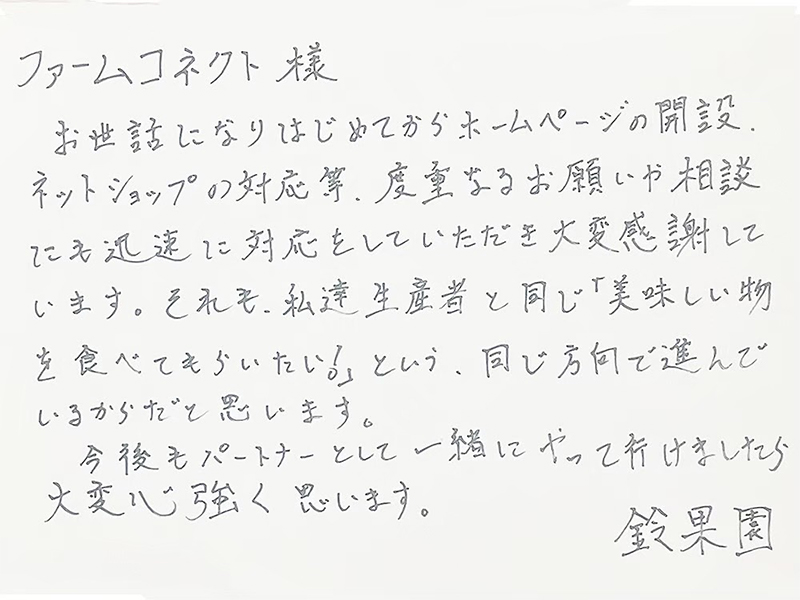 ファームコネクト様
お世話になりはじめてからホームページの開設、
ネットショップの対応等、度重なるお願いや相談
にも迅速に対応をしていただき大変感謝して
います。それも、私達生産者と同じ「美味しい物
を食べてもらいたい!」という、同じ方向で進んで
いるからだと思います。
今後もパートナーとして一緒にやって行けましたら
大変心強く思います。
鈴果園